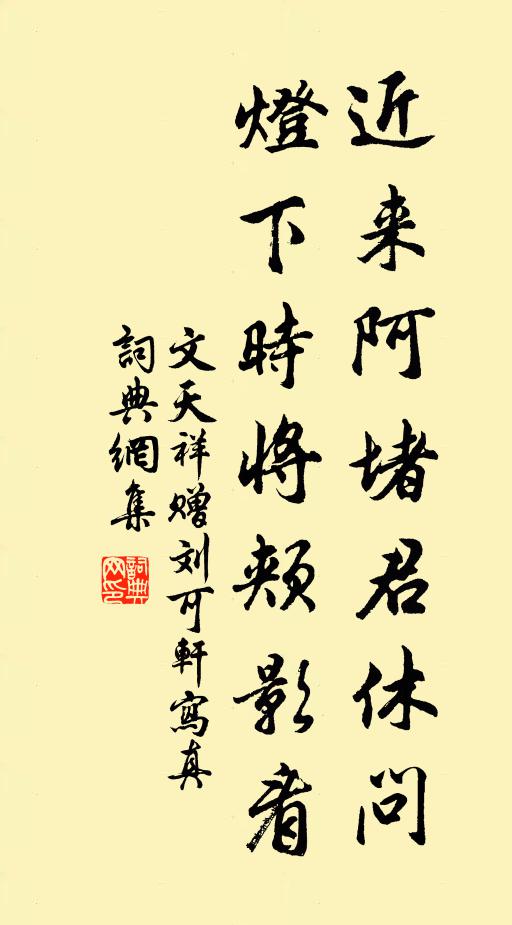 近来阿堵君休问
燈下時將頰影看
文天祥贈刘可軒寫真
詞典網集
詞典网印